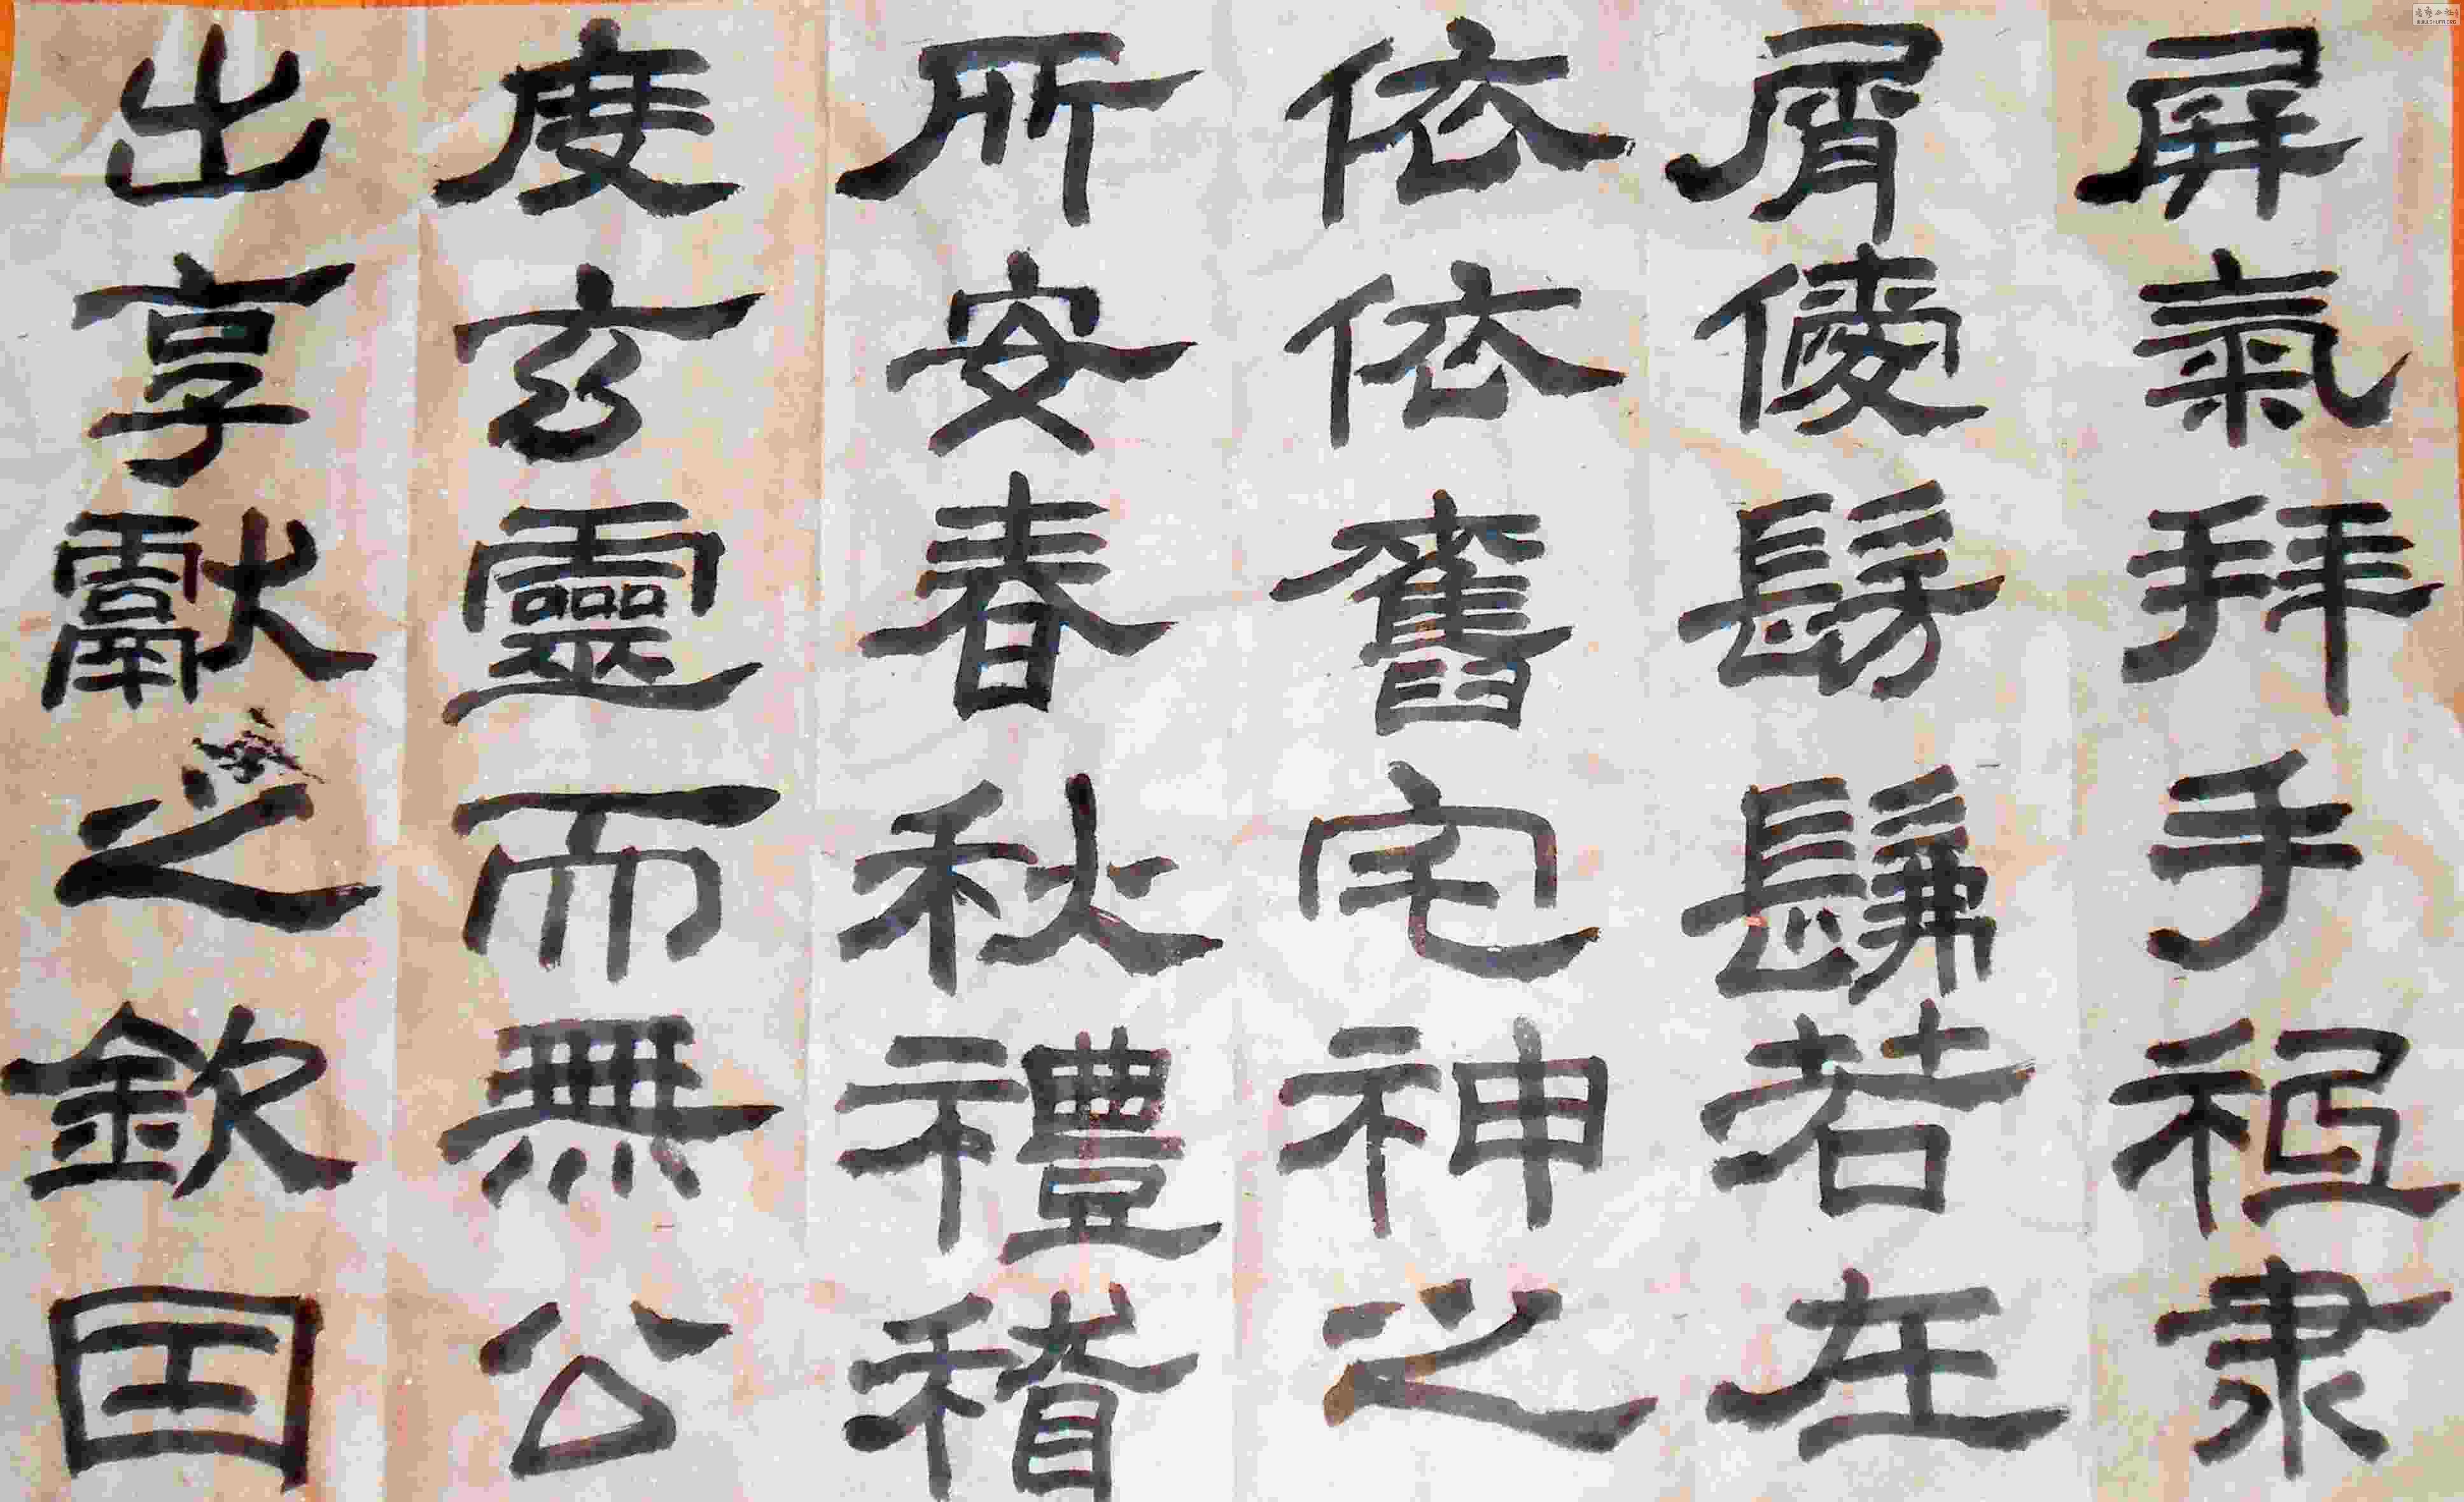 屏氣拜手祗肅
屑僾髣髴若在
依依舊宅神之
所安春秋禮稽
度玄靈而無公
出享獻之欽因